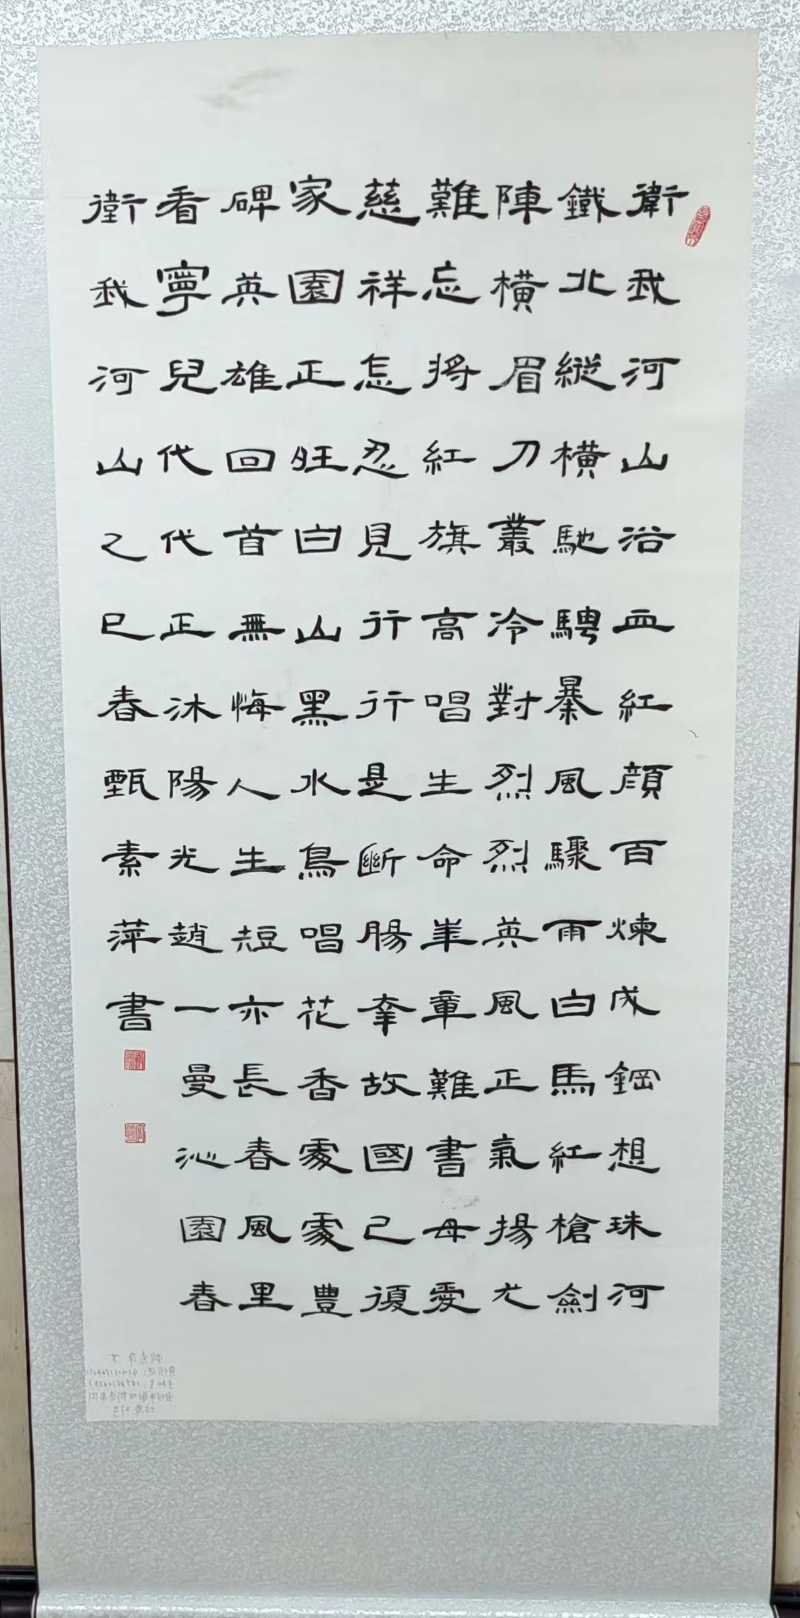 衛我河山浴血紅顔百煉成鋼想珠河
鐵北縱橫馳騁暴風驟雨白馬紅槍劍
陣橫眉刀叢冷對烈烈英風正氣揚尤
難忘將紅旗高唱生命半章難書母愛
慈祥怎忍見行行是斷腸牽故國已復
家園正旺白山黑水鳥唱花香處處豐
碑英雄回首無悔人生短亦長春風里
看寧兒代代正沐陽光趙一曼沁園春
衛我河山乙巳春甄素萍書